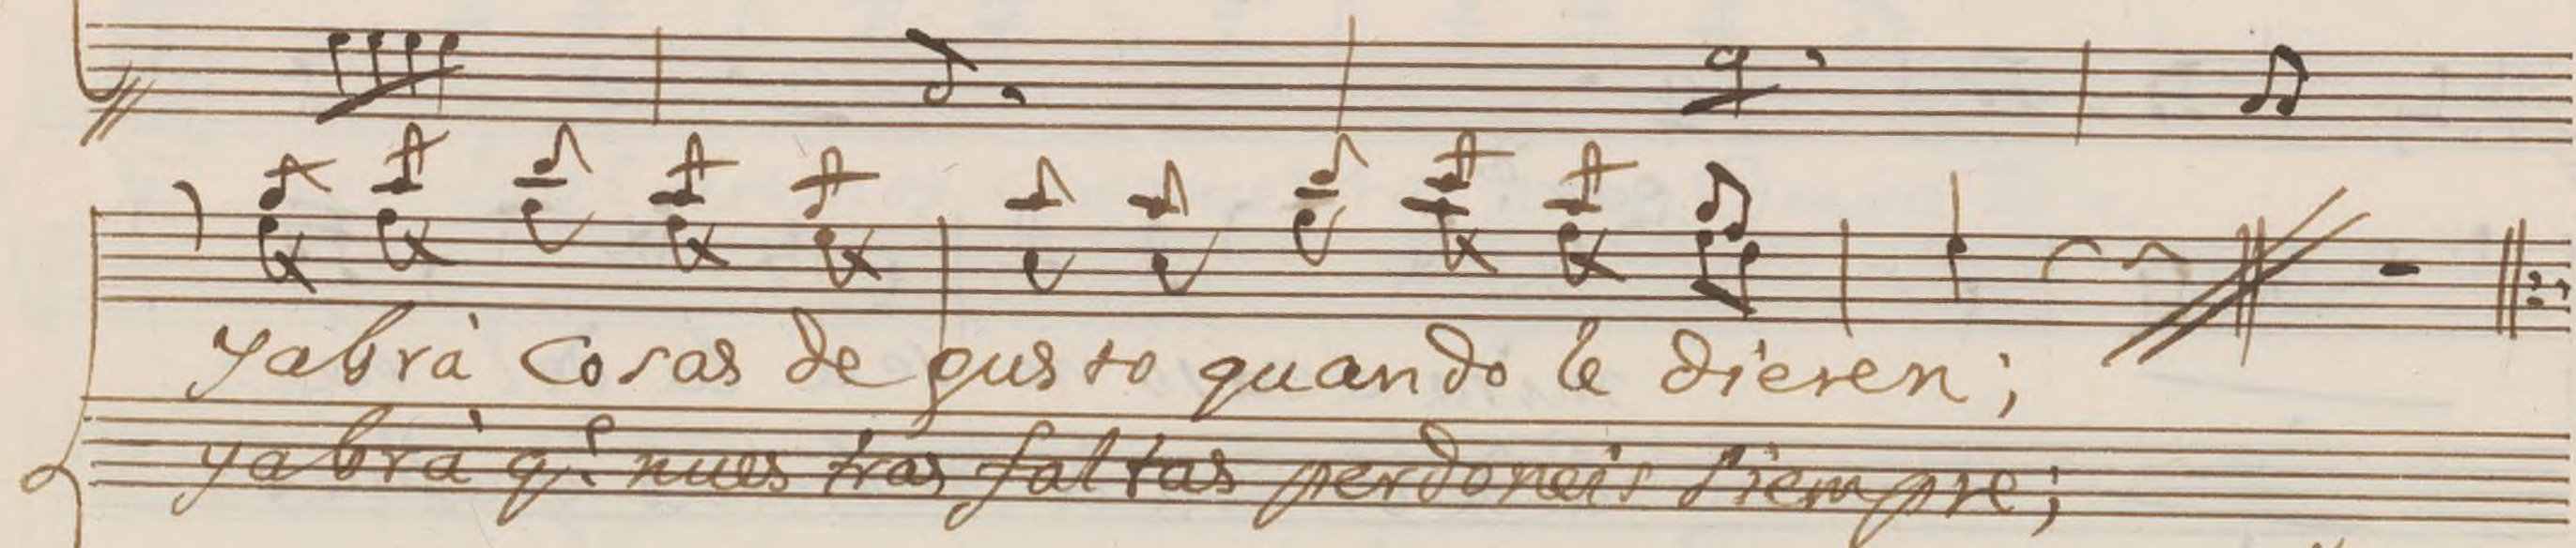 yabrà Cosas de gusto quando le dieren;
yabrà q.e nuestras faltas perdoneis siempre;